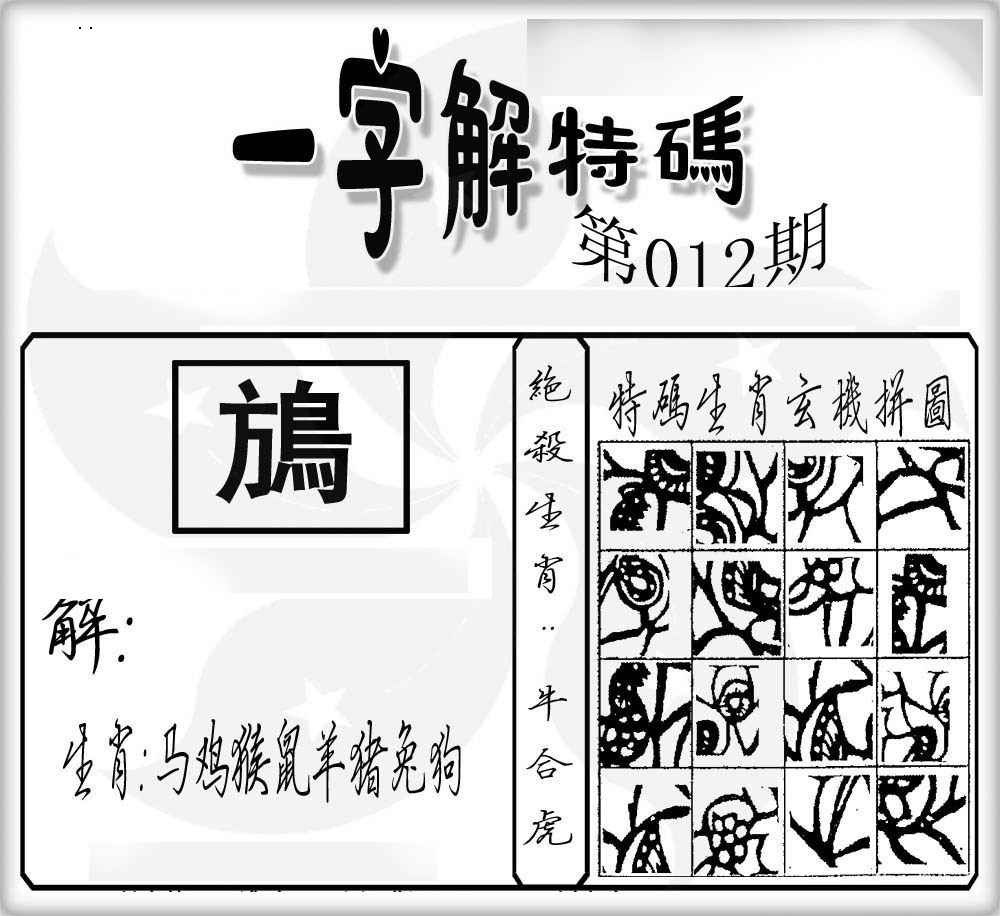 一字解特碼
第012期
鴋
解:
生肖:马鸡猴鼠羊猪兔狗
絶殺生肖:牛合虎
特碼生肖玄機拼圖